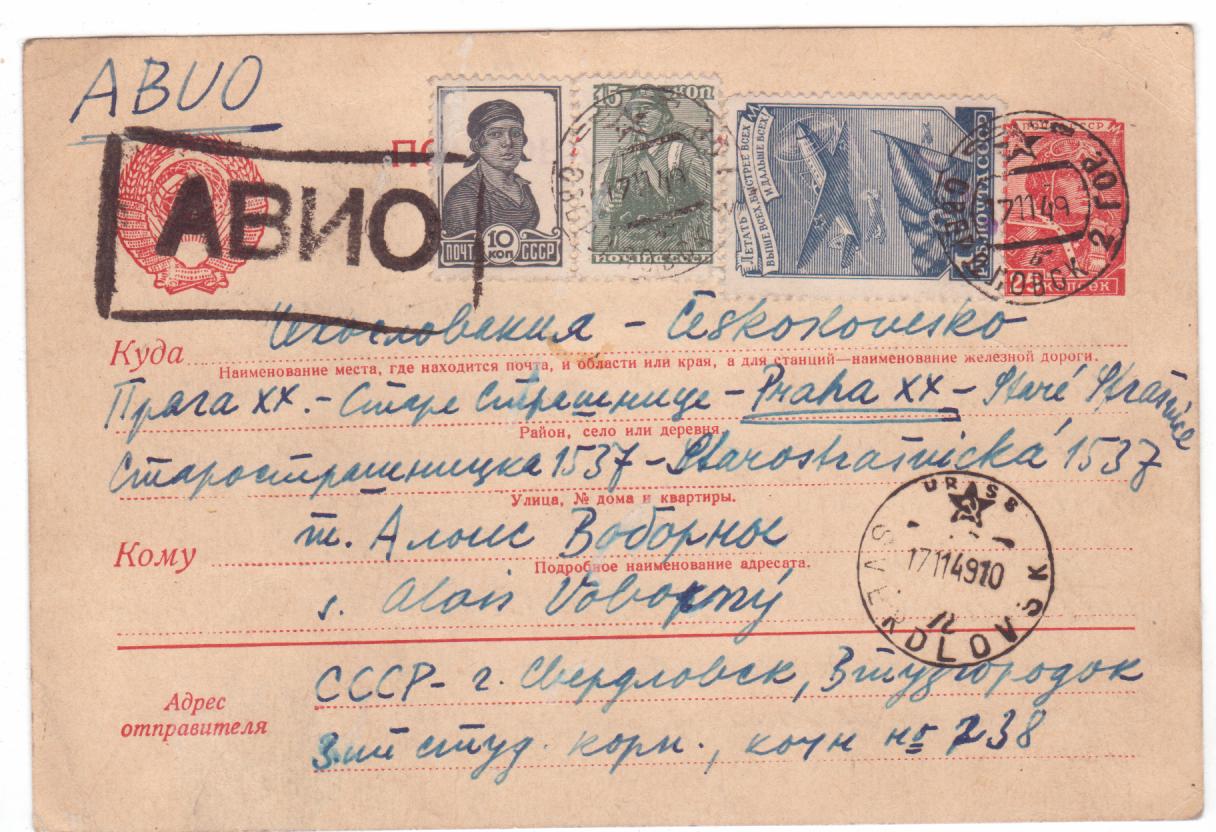 АВИО
АВИО
ПО
10
КОП
ПОЧТА СССР
15 КОП
ПОЧТА СССР
ЛЕТАТЬ БЫСТРЕЕ ВСЕХ
ВЫШЕ ВСЕХ И ДАЛЬШЕ ВСЕХ!
1 РУБ. ПОЧТА СССР
17 11 49
17 11 49
2 ГОР
25 копеек
Куда Чехословакия - Československo
Наименование места, где находится почта, и области или края, а для станций—наименование железной дороги.
Прага XX. - Старе Страшнице - Praha XX - Staré Strašnice
Район, село или деревня.
Старострашницка 1537 - Starostrašnická 1537
Улица, № дома и квартиры.
Кому т. Алоис Воборны
Подробное наименование адресата.
s. Alois Voborný
URSS
17 11 49 10
SVERDLOVSK
Адрес отправителя
СССР - г. Свердловск, Втузгородок
3ий студ. корп., комн № 238